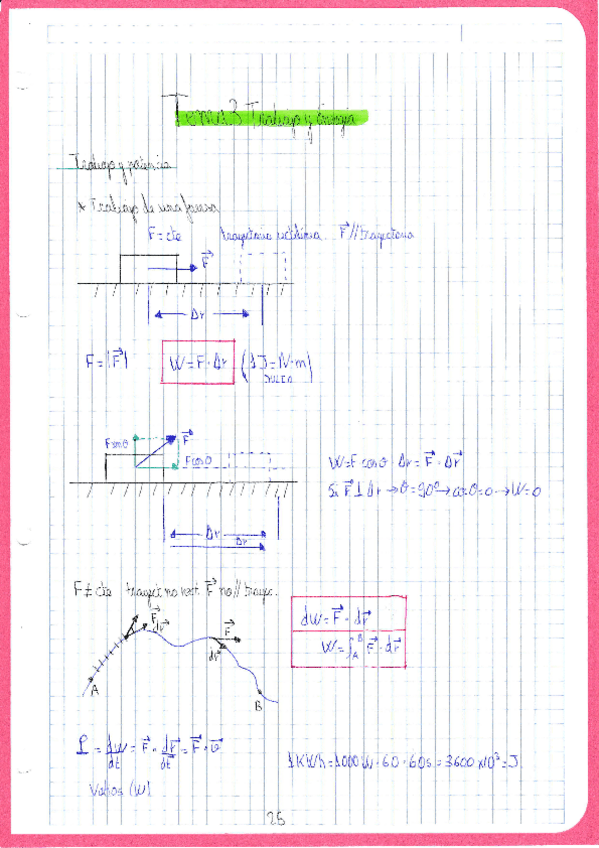 Tema 3 Trabajo y Energía
Trabajo y potencia
* Trabajo de una fuerza
F = cte trayectoria rectilínea F⃗ // trayectoria
F⃗
Δr
F = |F⃗| W = F · Δr (1J = 1N·m)
JULIO
F⃗
F senθ
F cosθ
W = F cosθ Δr = F⃗ · Δr⃗
Si F⃗ ⊥ Δr → θ = 90º → cosθ = 0 → W = 0
Δr
Δr
F ≠ cte trayect no rect. F⃗ no // trayec.
F⃗
dr⃗
F⃗
dr⃗
A
B
dW = F⃗ · dr⃗
W = ∫_A^B F⃗ · dr⃗
P = dW/dt = F⃗ · dr⃗/dt = F⃗ · v⃗
1 KWh = 1000 W · 60 · 60s = 3600 x10³ = J
(W)
26